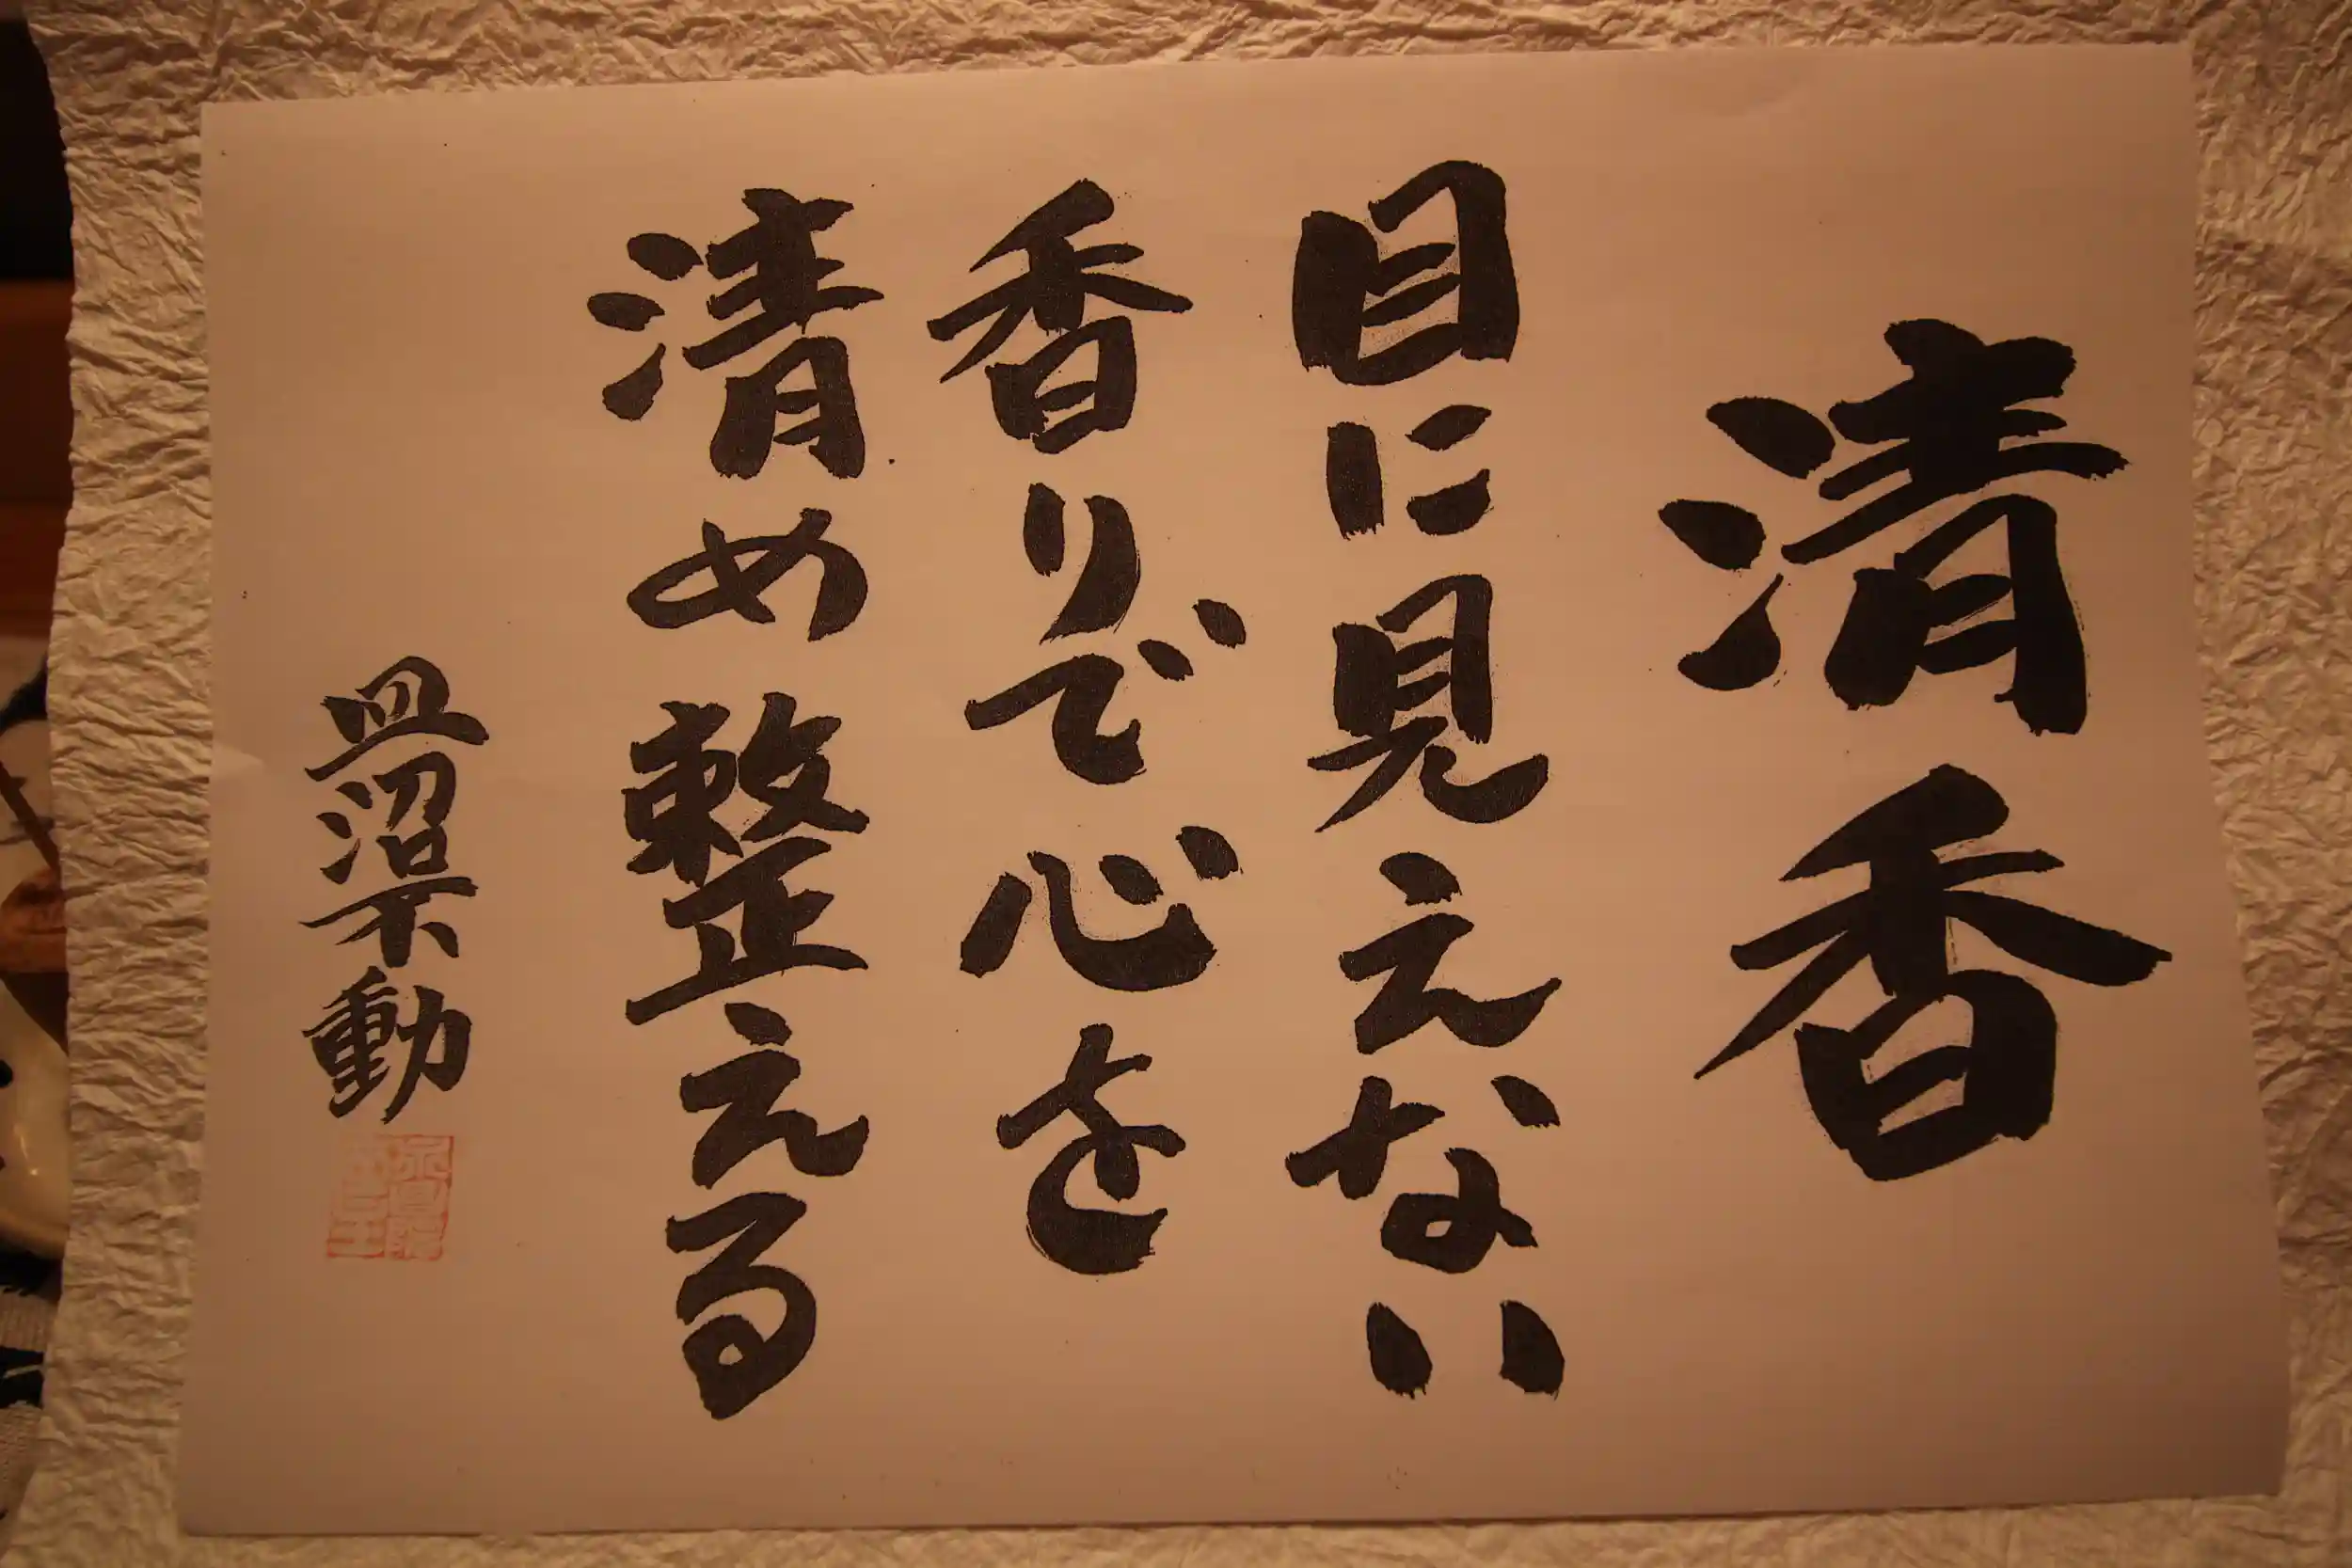 清香
目に見えない
香りで心を
清め整える